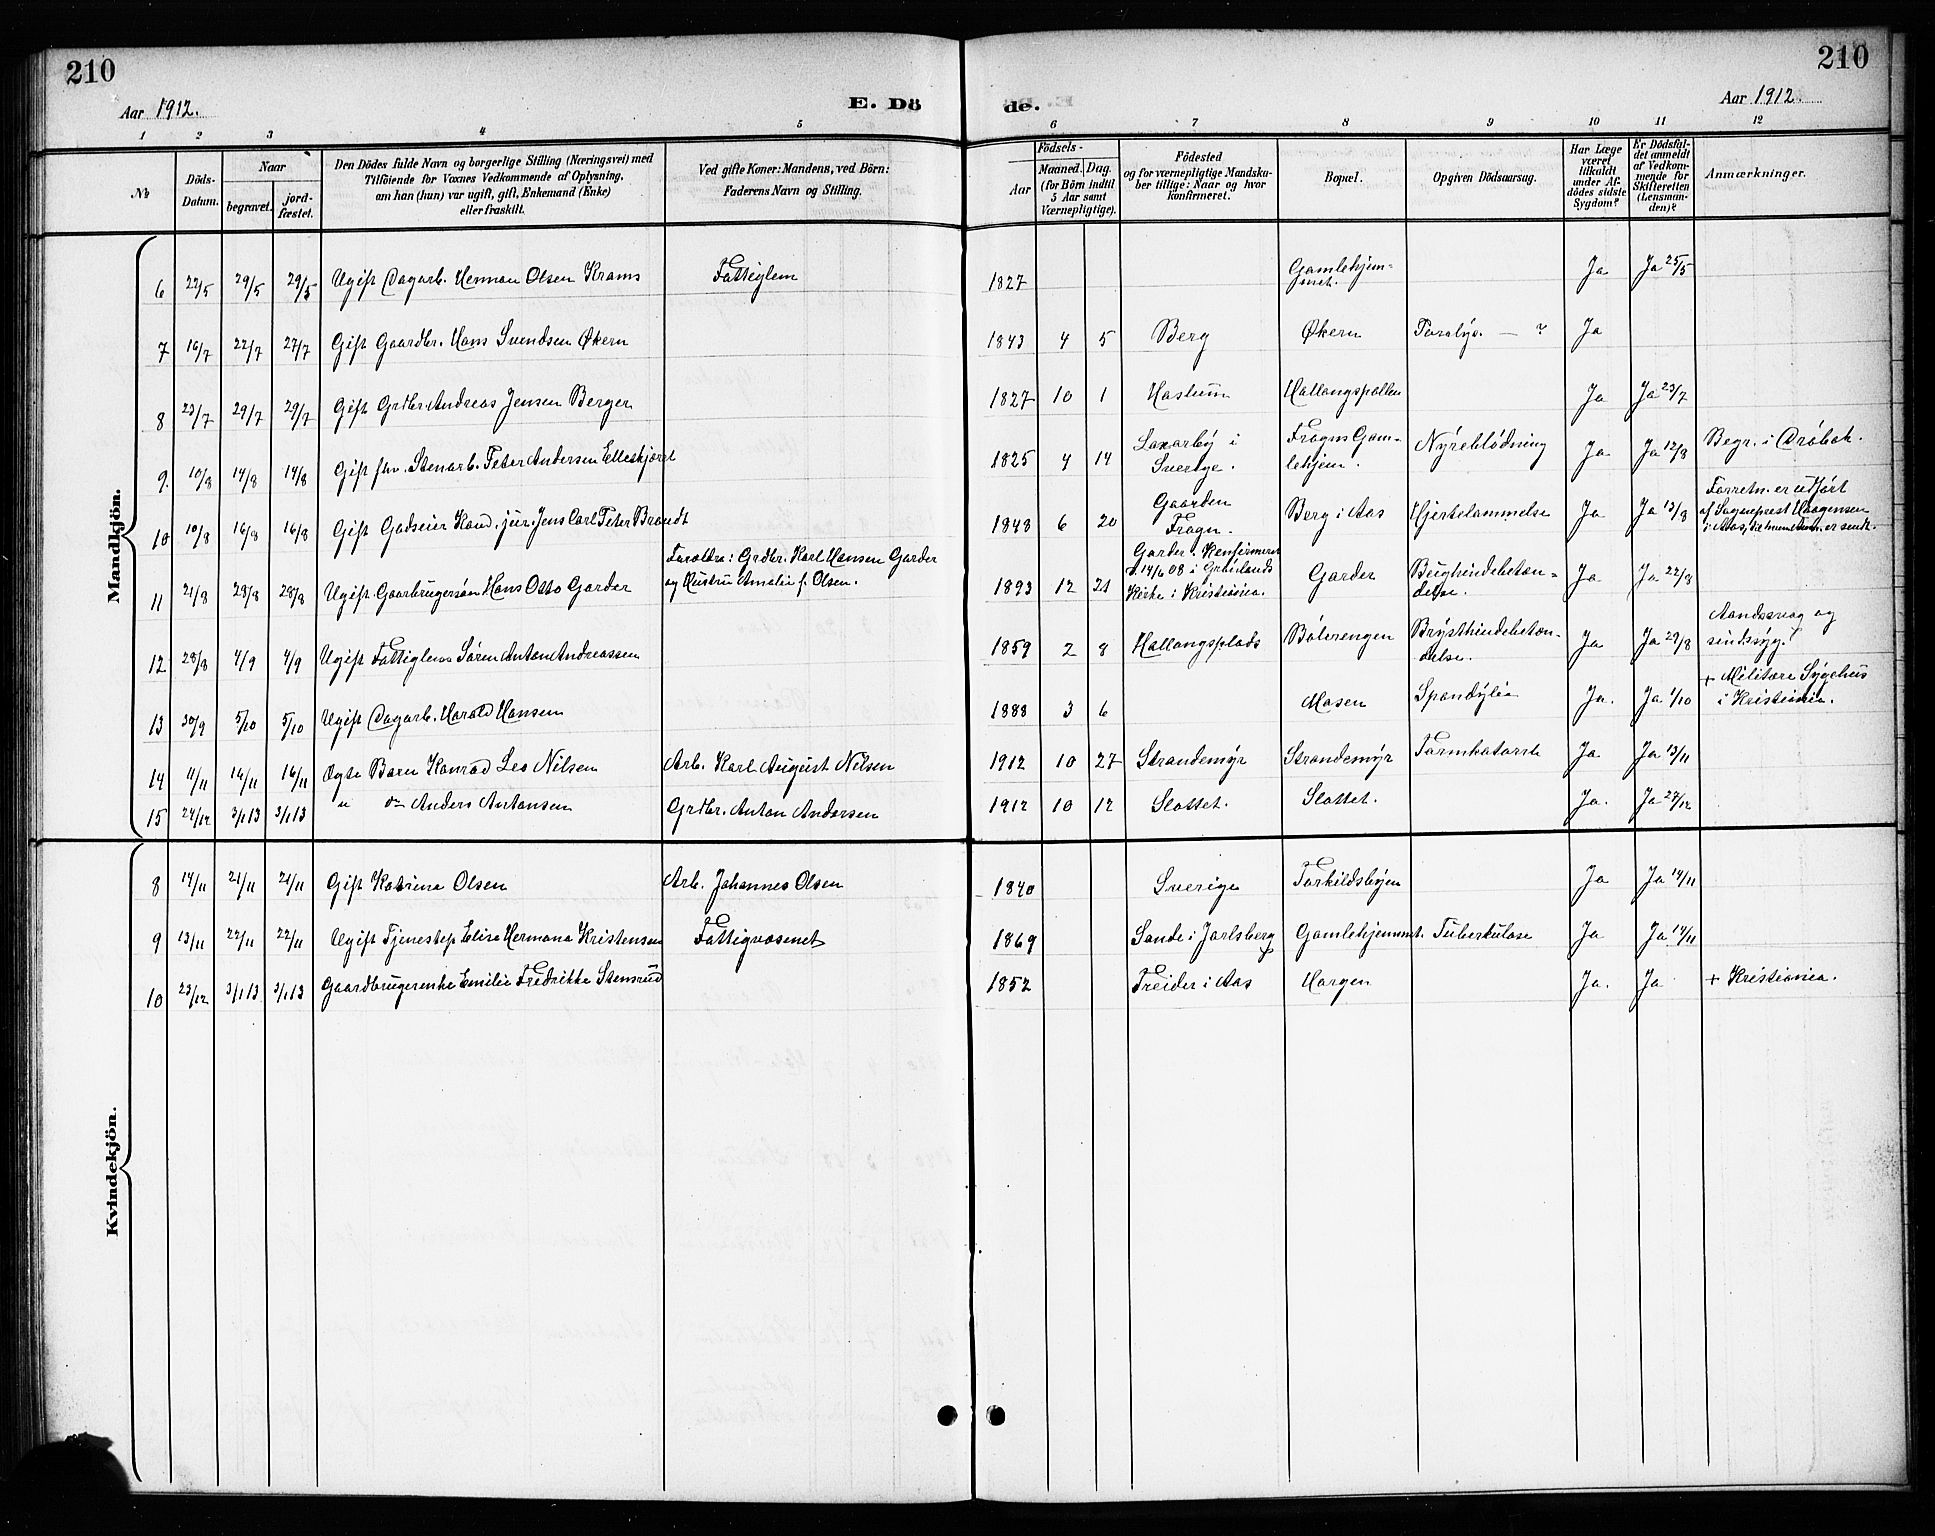 210
210
Aar 1912.
E. Dö
de.
Aar 1912.
1 2 3 4 5 6 7 8 9 10 11 12
№
Döds-Datum.
Naar
begravet.
jord-fæstet.
Den Dödes fulde Navn og borgerlige Stilling (Næringsvei) med
Tilföiende for Voxnes Vedkommende af Oplysning,
om han (hun) var ugift, gift, Enkemand (Enke)
eller fraskilt.
Ved gifte Koner: Mandens, ved Börn:
Faderens Navn og Stilling.
Födsels-
Aar
Maaned. Dag.
(for Börn indtil
5 Aar samt
Værnepligtige).
Födested
og for værnepligtige Mandska-
ber tillige: Naar og hvor
konfirmeret.
Bopæl.
Opgiven Dödsaarsag.
Har Læge
været
tilkaldt
under Af-
dödes sidste
Sygdom?
Er Dödsfal-
det anmeldt
af Vedkom-
mende for
Skifteretten
(Lensman-
den)?
Anmærkninger.
Mandkjön.
6 22/5 29/5 29/5 Ugift Dagarb. Herman Olsen Krams Fattiglem 1827 Gamlehjem-met. Ja Ja 25/5
7 16/7 22/7 27/7 Gift Gaardbr. Hans Svendsen Økern 1843 4 5 Berg Økern Paralys. — ? Ja
8 23/7 29/7 29/7 Gift Grdbr. Andreas Jensen Berger 1827 10 1 Haslum Hallangspollen Ja Ja 23/7
9. 10/8 14/8 14/8 Gift fhv. Stenarb. Peter Andersen Elleskjæret 1825 4 14 Laxarby i Sverige. Frogns Gam-lehjem. Nyreblödning Ja Ja 12/8 Begr. i Dröbak.
10 10/8 16/8 16/8 Gift Godseier Kand. jur. Jens Carl Peter Brandt 1848 6 20 Gaarden Frogn. Berg i Aas Hjertelammelse Ja Ja 13/8 Forretn. er udfört af Sogneprest Haagensen i Aas,
11 21/8 28/8 28/8 Ugift Gaarbrugersön Hans Otto Garder Foreldre: Grdbr. Karl Hansen Garder og Hustru Amalie f. Olsen. 1893 12 21 Garder. Konfirmeret d. 14/6 08 i Grönlands Kirke i Kristiania. Garder Bughindebetæn-delse. Ja Ja 22/8
12 28/8 4/9 4/9 Ugift Fattiglem Sören Anton Andreassen 1859 2 8 Hallangsplads Bölerengen Brysthindebetæn-delse. Ja Ja 29/8 Aandssvag og sindssyg!
13 30/9 5/10 5/10 Ugift Dagarb. Harald Hansen 1888 3 6 Mosen Spondylie Ja. Ja 1/10 + Militære Sygehus i Kristiania.
14 4/11 16/11 16/11 Ægte Barn Konrad Leo Nilsen Arb. Karl August Nilsen 1912 10 27 Strandemyr Strandemyr Tarmkatarrh Ja Ja 13/11
15 24/12 3/1 13 3/1 13 " do Anders Antonsen Grdbr. Anton Andersen 1912 10 12 Slottet. Slottet. Ja. Ja 27/12
Kvindekjön.
8 14/11 21/11 21/11 Gift Katrina Olsen Arb. Johannes Olsen 1840 Sverige Torkildsbyen Ja Ja 14/11
9 13/11 22/11 22/11 Ugift Tjenestep. Elise Hermana Kristensen Fattigvæsenet 1869 Sande i Jarlsberg Gamlehjemmet. Tuberkulose Ja Ja 14/11
10 23/12 3/1 13 3/1 13 Gaardbrugerenke Emilie Fredrikke Stensrud 1852 Freider i Aas Horgen Ja. Ja + Kristiania.